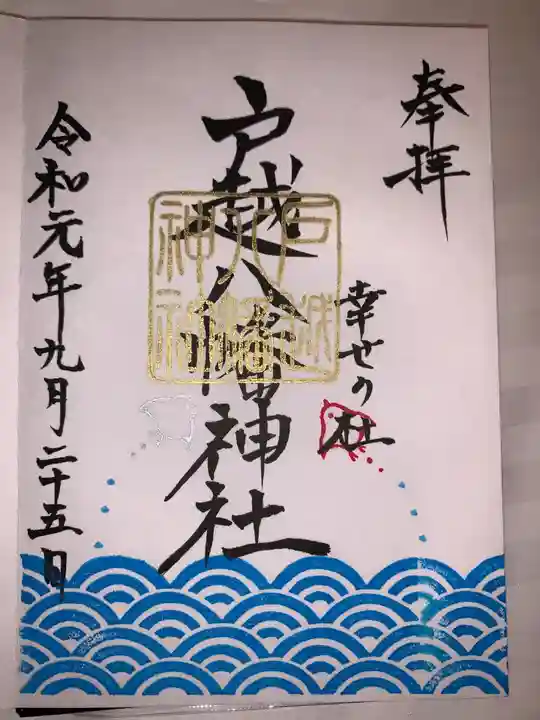 奉拝
幸せの杜
戸越八幡神社
戸越
八幡
神社
令和元年九月二十五日